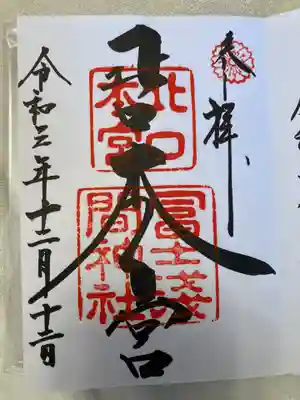 奉拝、
北口本宮
北口
本宮
冨士淺
間神社
令和三年十二月十二日